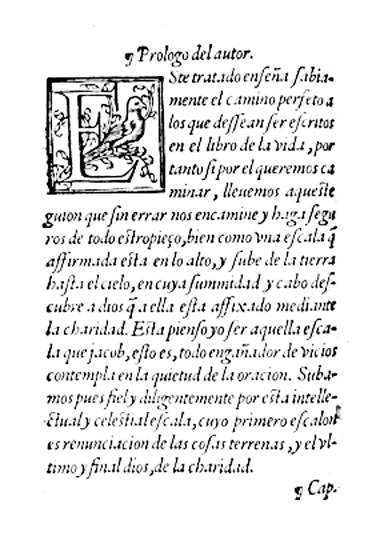 ¶ Prologo del autor.
ESte tratado enseña sabia-
mente el camino perfeto a
los que dessean ser escritos
en el libro de la vida, por
tanto si por el queremos ca
minar, lleuemos aqueste
guion que sin errar nos encamine y haga segu
ros de todo estropieço, bien como vna escala q̃
affirmada esta en lo alto, y sube de la tierra
hasta el cielo, en cuya summidad y cabo des-
cubre a dios q̃ a ella esta affixado mediante
la charidad. Esta pienso yo ser aquella esca-
la que jacob, esto es, todo engañador de vicios
contempla en la quietud de la oracion. Suba-
mos pues fiel y diligentemente por esta intelle-
ctual y celestial escala, cuyo primero escalon
es renunciacion de las cosas terrenas, y el vl-
timo y final dios, de la charidad.
¶ Cap.